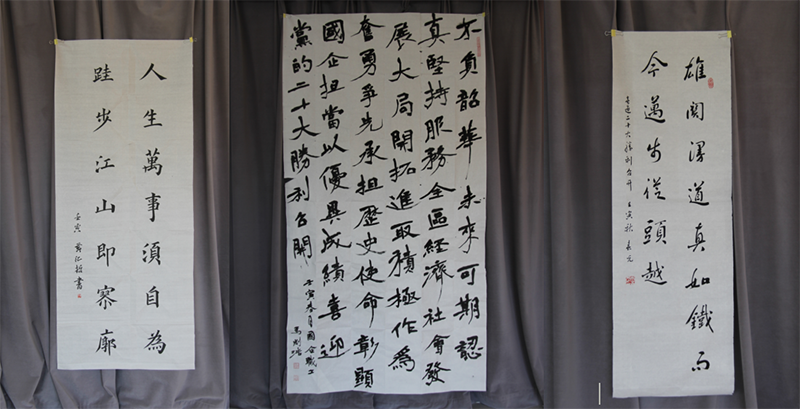 人生萬事須自為
跬步江山即寥廓
壬寅 書
不負韶華未來可期認
真堅持服務全區經濟社會發
展大局開拓進取積極作為
奮勇爭先承担歷史使命彰顯
國企担當以優異成績喜迎
黨的二十大勝利召開
壬寅 月國合職工
雄関漫道真如鐵而
今邁步從頭越
喜迎二十大勝利召开 壬寅秋